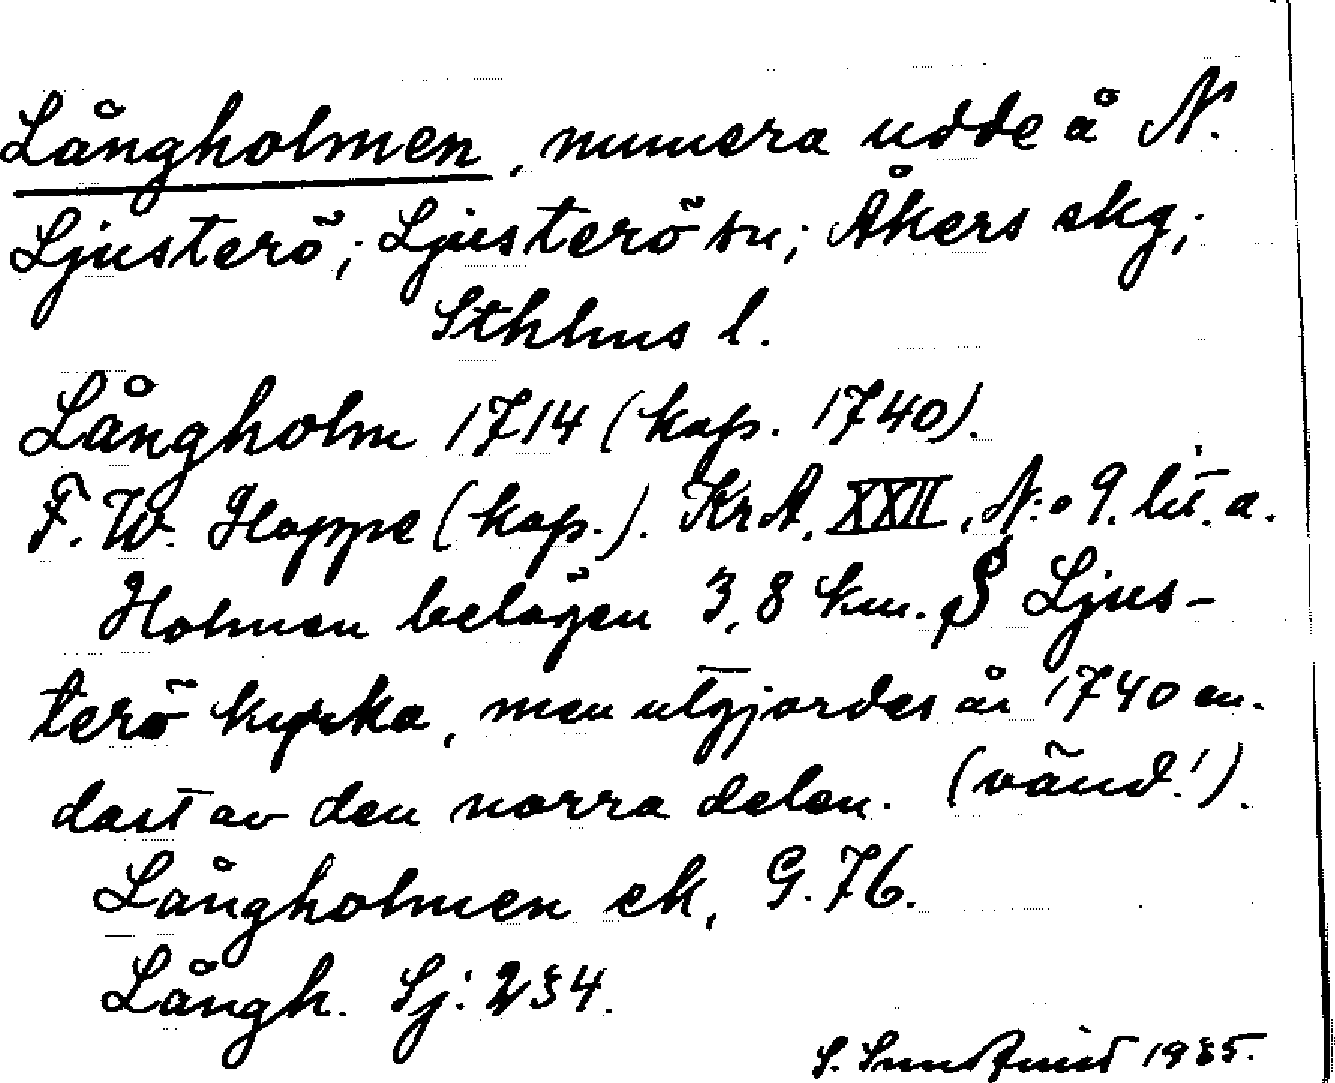 Långholmen, numera udde å N.
Ljusterö; Ljusterö sn; Åkers skg;
Sthlms l.
Långholm 1714 (kop. 1740).
F. W. Hoppe (kop.). KrA. XXII, N:o 9. lit. a.
Holmen belägen 3,8 km. S Ljus-
terö kyrka, men utgjordes år 1740 en-
dast av den norra delen. (vänd!).
Långholmen ek, G. 76.
Långh. Sj: 234.
S. Sundqvist 1935.